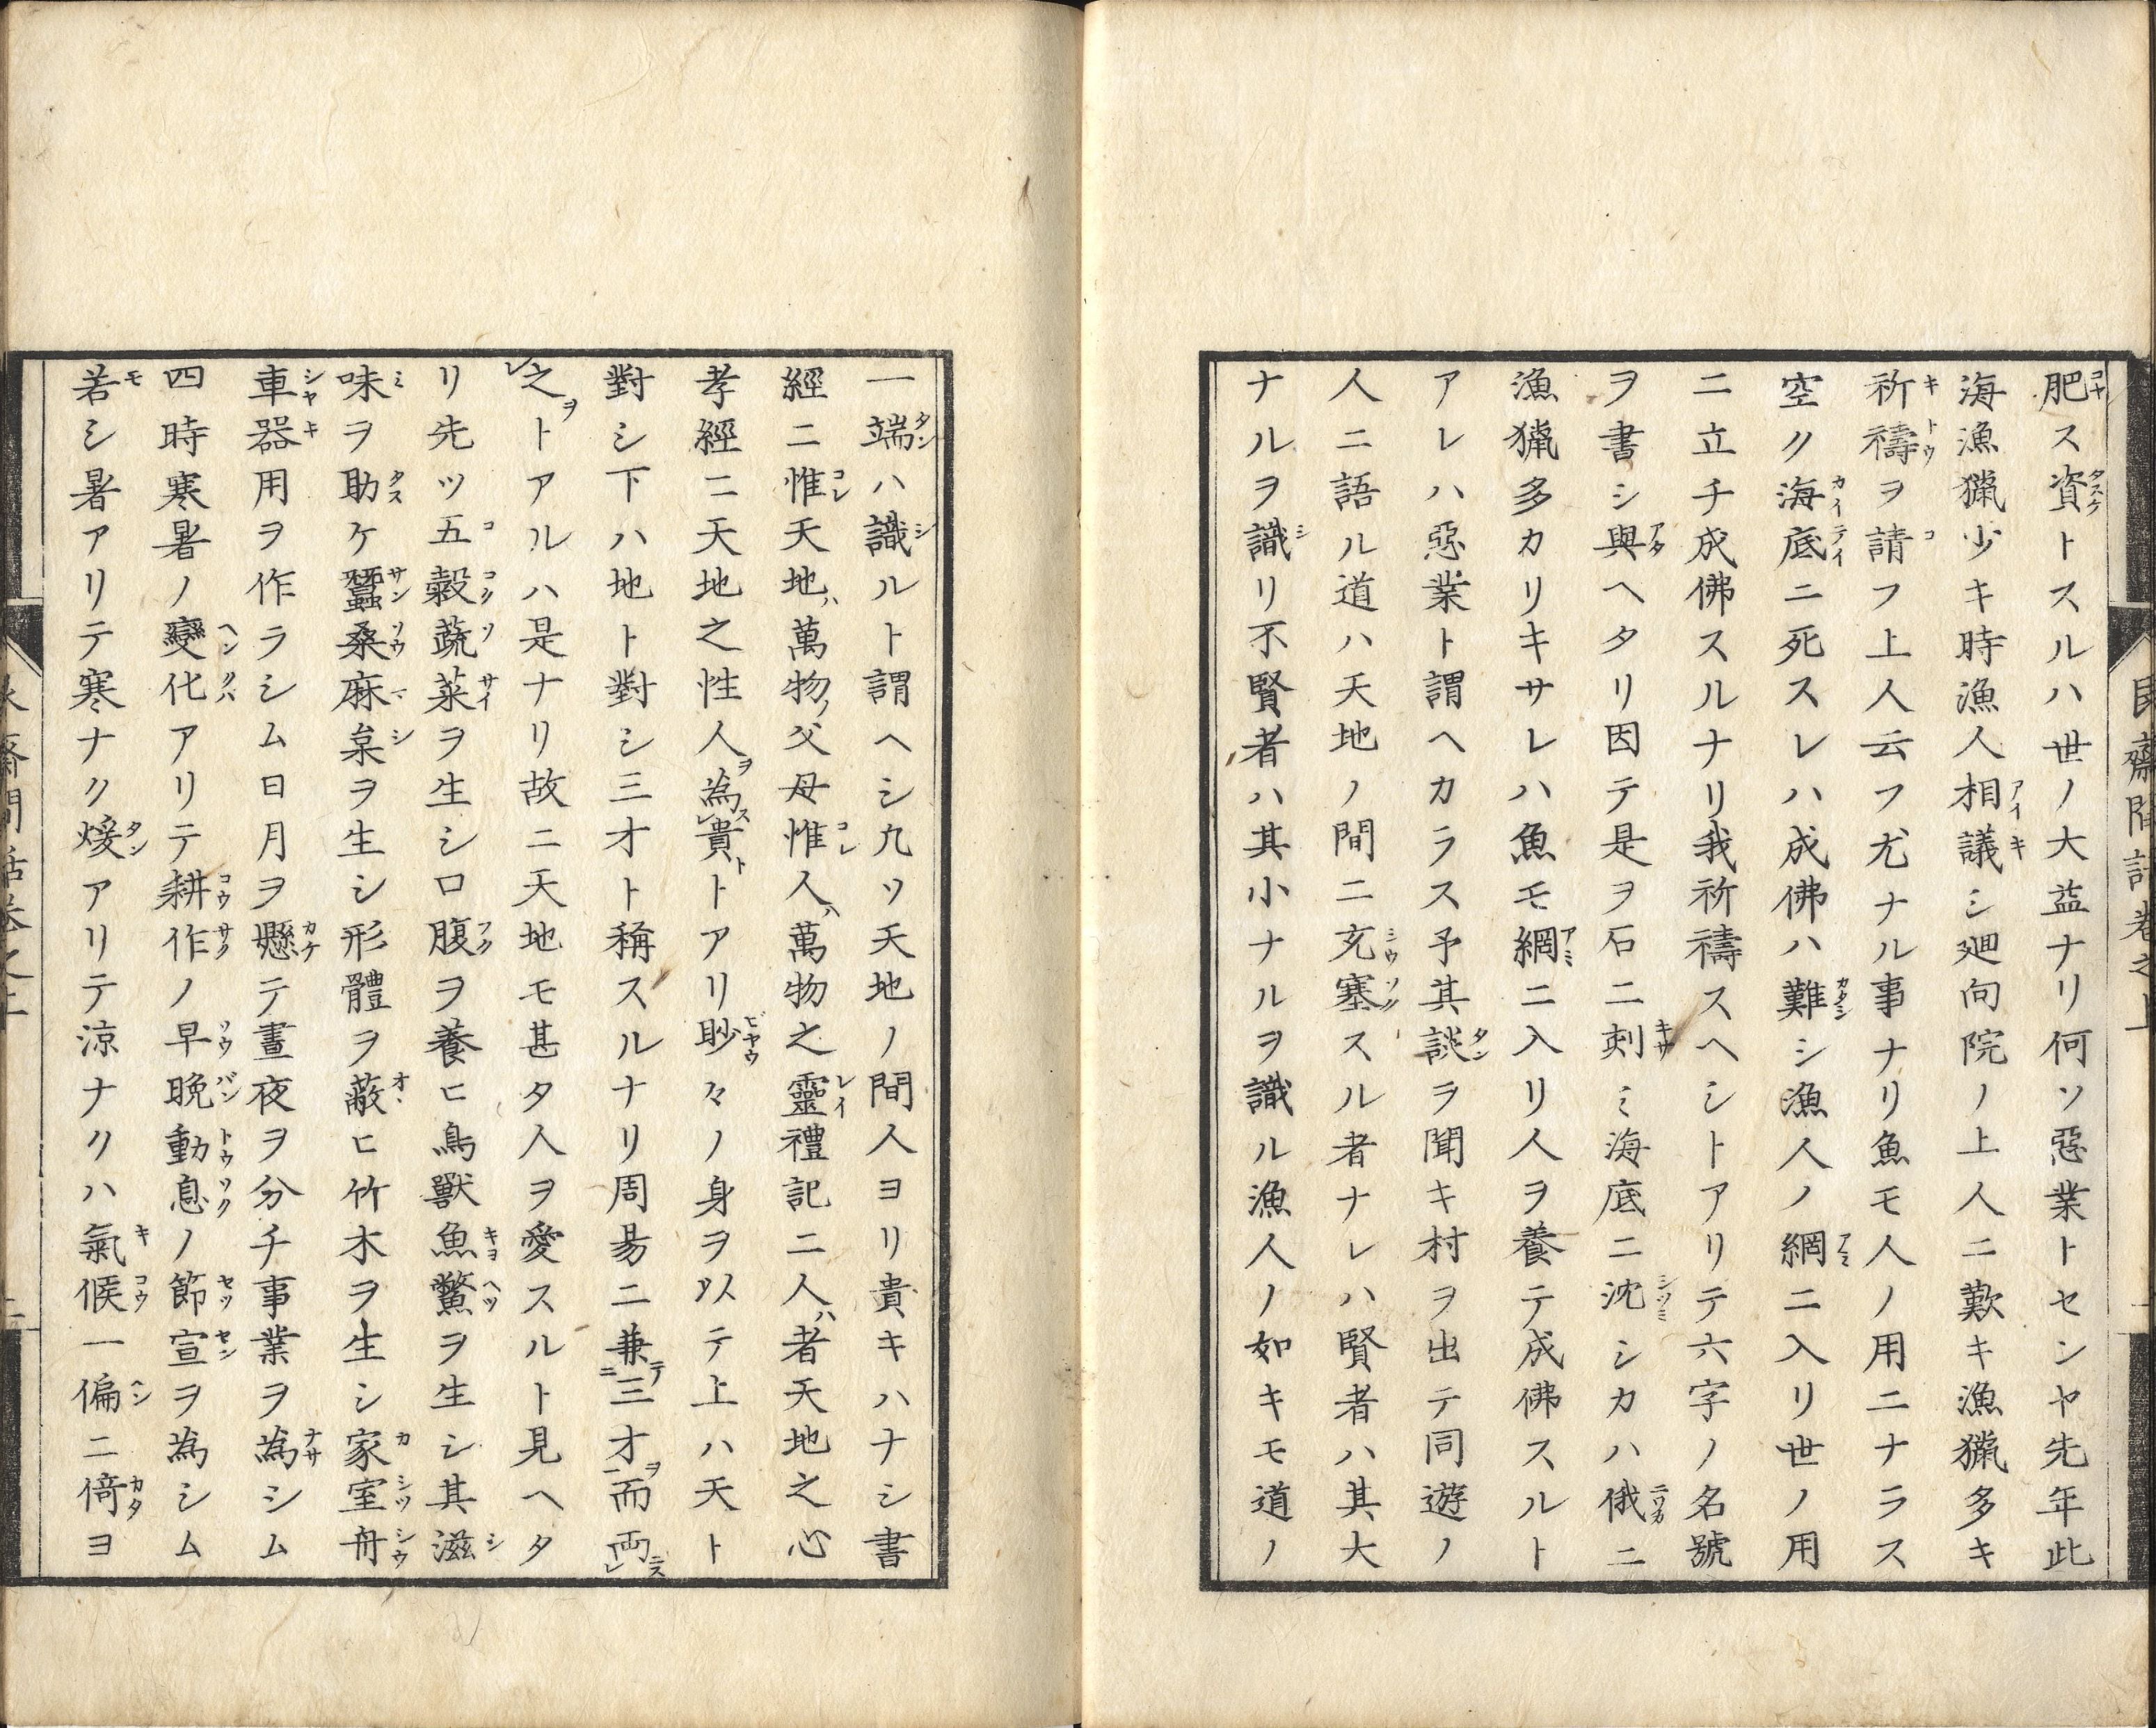 肥ス資トスルハ世ノ大益ナリ何ソ惡業トセンヤ先年此
海漁獵少キ時漁人相議シ廻向院ノ上人ニ歎キ漁獵多キ
祈禱ヲ請フ上人云フ尤ナル事ナリ魚モ人ノ用ニナラス
空ク海底ニ死スレハ成佛ハ難シ漁人ノ網ニ入リ世ノ用
ニ立チ成佛スルナリ我祈禱スヘシトアリテ六字ノ名號
ヲ書シ與ヘタリ因テ是ヲ石ニ刻ミ海底ニ沈シカハ俄ニ
漁獵多カリキサレハ魚モ網ニ入リ人ヲ養テ成佛スルト
アレハ惡業ト謂ヘカラス予其談ヲ聞キ村ヲ出テ同遊ノ
人ニ語ル道ハ天地ノ間ニ充塞スル者ナレハ賢者ハ其大
ナルヲ識リ不賢者ハ其小ナルヲ識ル漁人ノ如キモ道ノ
一端ハ識ルト謂ヘシ凢ソ天地ノ間人ヨリ貴キハナシ書
經ニ惟天地ハ萬物ノ父母惟人ハ萬物之靈禮記ニ人ハ者天地之心
孝經ニ天地之性人ヲ為レス貴トトアリ眇々ノ身ヲ以テ上ハ天ト
對シ下ハ地ト對シ三才ト稱スルナリ周易ニ兼テ二三才ヲ一而兩ニス
レ之ヲトアルハ是ナリ故ニ天地モ甚タ人ヲ愛スルト見ヘタ
リ先ツ五穀蔬菜ヲ生シ口腹ヲ養ヒ鳥獸魚鱉ヲ生シ其滋
味ヲ助ケ蠶桑麻枲ヲ生シ形體ヲ蔽ヒ竹木ヲ生シ家室舟
車器用ヲ作ラシム日月ヲ懸テ晝夜ヲ分チ事業ヲ為シム
四時寒暑ノ變化アリテ耕作ノ早晚動息ノ節宣ヲ為シム
若シ暑アリテ寒ナク煖アリテ涼ナクハ氣候一偏ニ倚ヨ